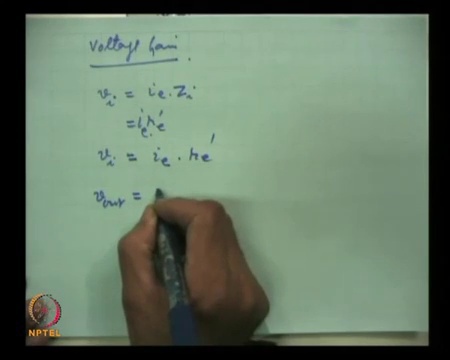 Voltage Gain.
v_i = i_e . Z_i
= i_e r_e'
v_i = i_e . r_e'
v_out =
NPTEL